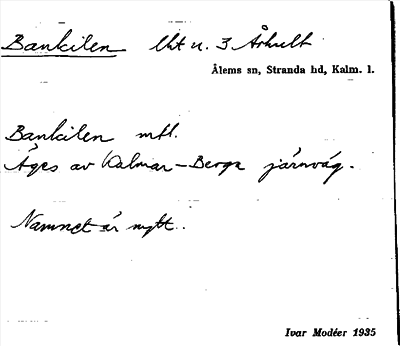 Bankilen lht u. 3 Århult
Ålems sn, Stranda hd, Kalm. l.
Bankilen mtl.
Äges av Kalmar–Berga järnväg.
Namnet är nytt.
Ivar Modéer 1935